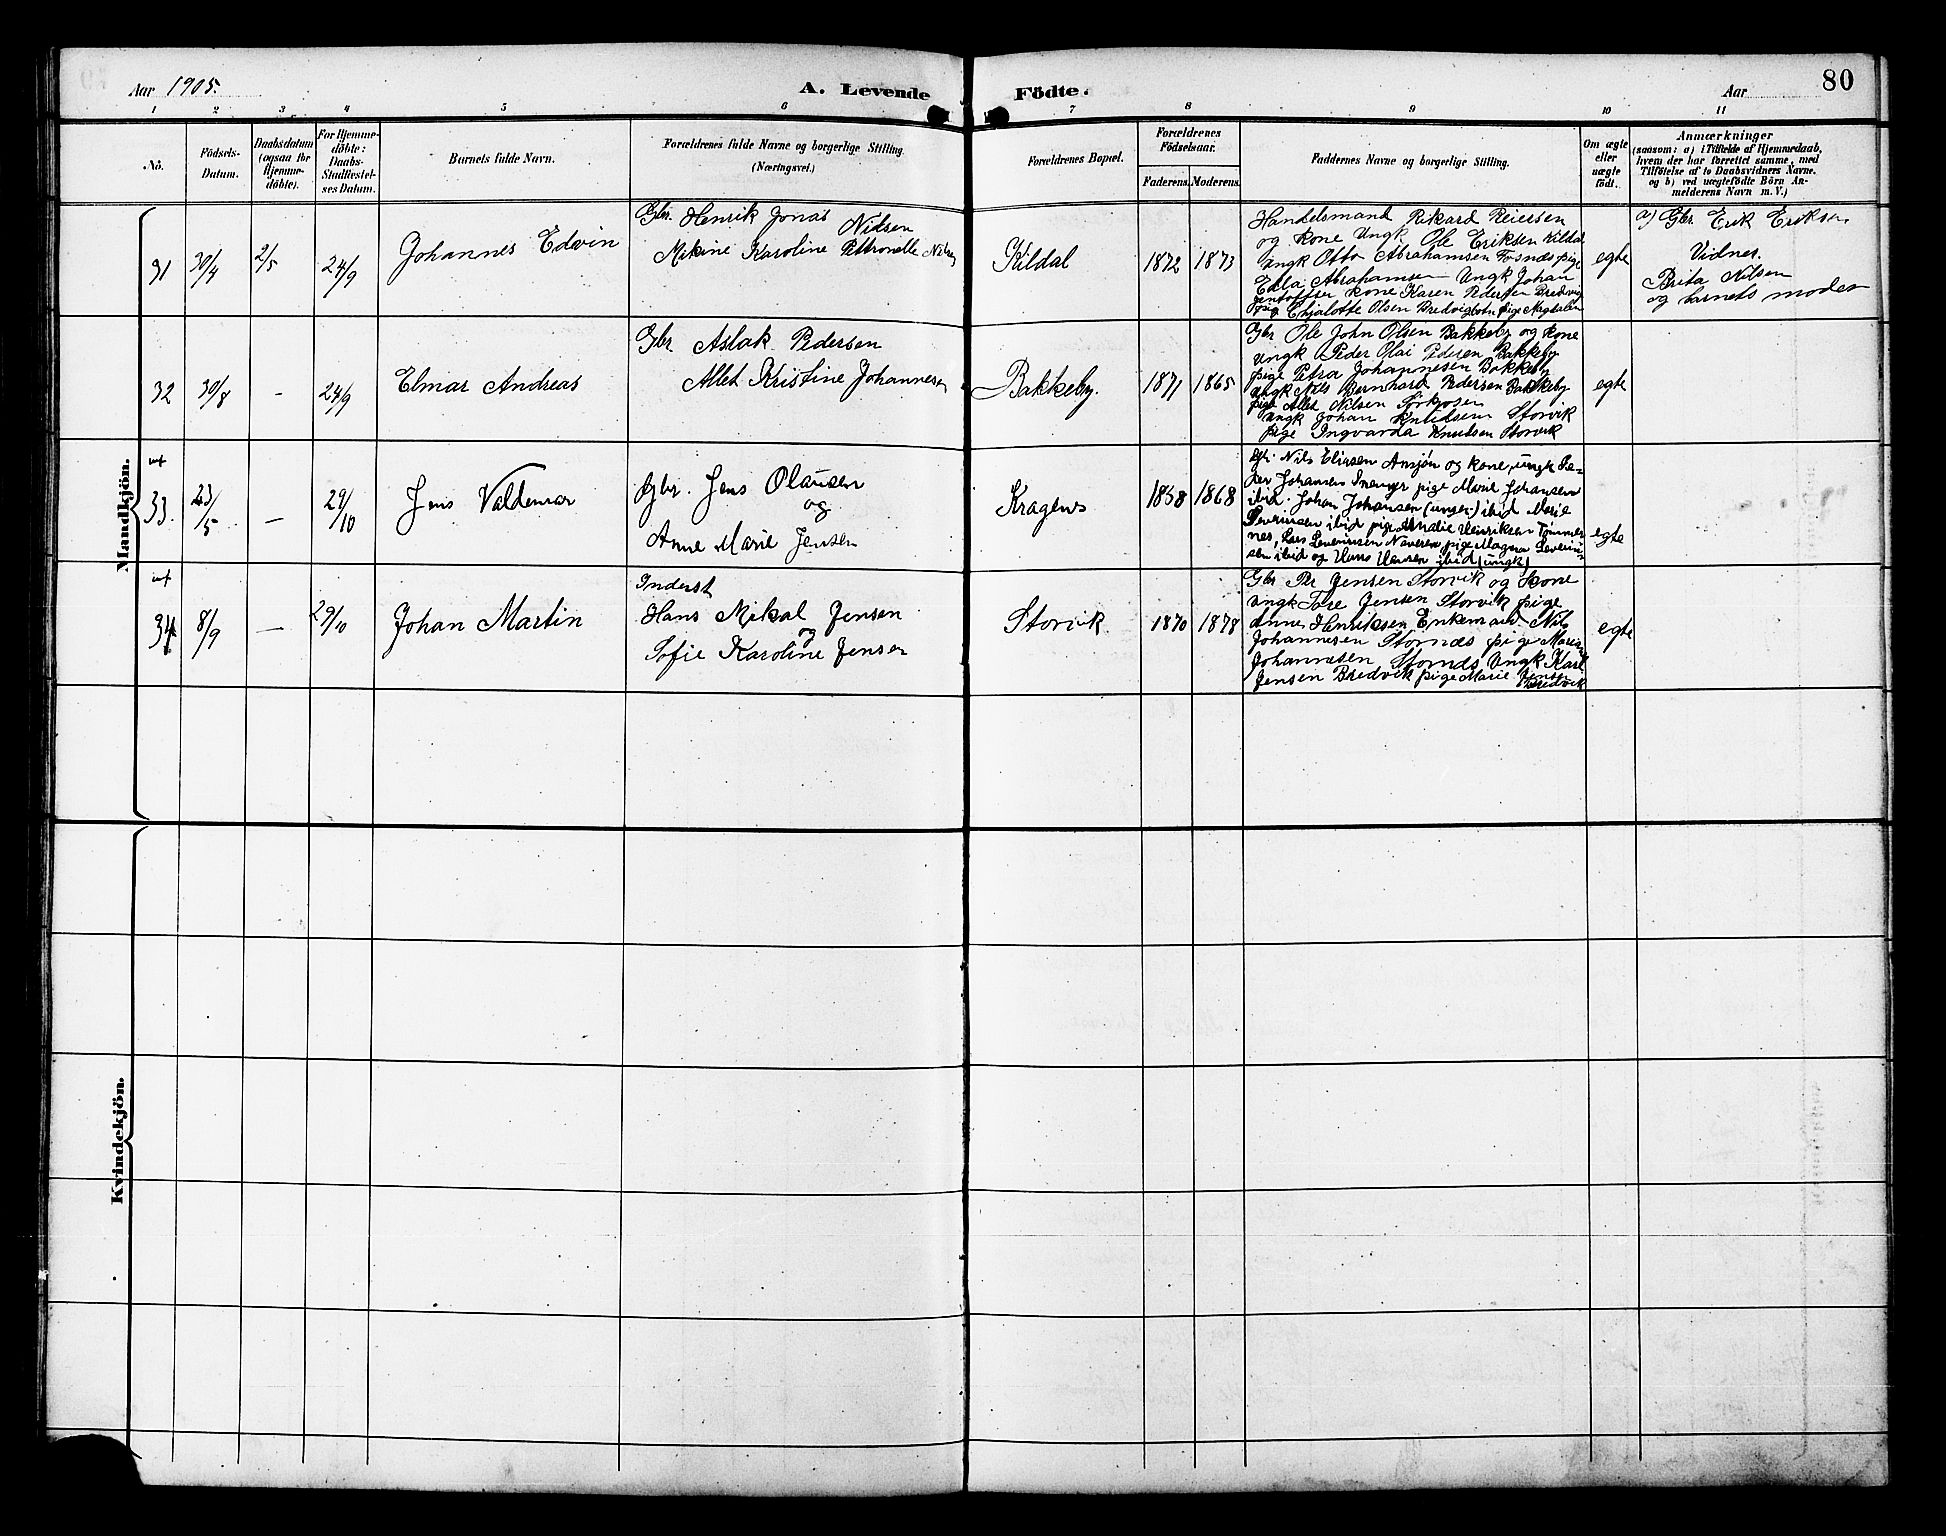 Aar 1905.
A. Levende Födte.
Aar
80
1 2 3 4 5 6 7 8 9 10 11
No.
Födsels-
Datum.
Daabsdatum
(ogsaa for
Hjemme-
döbte).
For Hjemme-
döbte:
Daabs-
Stadfestel-
ses Datum.
Barnets fulde Navn.
Forældrenes fulde Navne og borgerlige Stilling.
(Næringsvei.)
Forældrenes Bopæl.
Forældrenes
Födselsaar.
Faderens. Moderens.
Faddernes Navne og borgerlige Stilling.
Om ægte
eller
uægte
födt.
Anmærkninger
(saasom: a) i Tilfelde af Hjemmedaab,
hvem der har forrettet samme, med
Tilföielse af to Daabsvidners Navne.
og b) ved uægtefödte Börn An-
melderens Navn m. V.)
Mandkjön.
31
30/4
2/5
24/9
Johannes Edvin
Gbr. Henrik Jonas
Nilsen
Mikine Karoline Petronelle Nilsen
Kildal
1872 1873
Handelsmand Rikard Reiersen
og kone Ungk Ole Eriksen Kildal
Ungk Otto Abrahamsen Fosnæs pige
Edla Abrahamsen Ungk Johan
kone Karen Pedersen Bredvig
pig Chjalotte Olsen Bredvigbotn pige Magdalen
egte
a) Gbr. Erik Eriksen
Vidnes.
Brita Nilsen
og barnets moder
32
30/8
-
24/9
Elmar Andreas
Gbr Aslak Pedersen
Allet Kristine Johannesen
Bakkeby.
1871 1865
Gbr Ole John Olsen Bakkeby og kone
Ungk Peder Olai Pedersen Bakkeby
pige Petra Johannesen Bakkeby
Ungk Nils Bernhard Pedersen Bakkeby
pige Allet Nilsen Sørkjosen
Ungk Johan Knudsen Storvik
pige Ingvarda Knudsen Storvik
egte
33.
23/5
-
29/10
Jens Valdemar
Gbr. Jens Olausen
og
Anne Marie Jensen
Kragenes
1858 1868
Gbr. Nils Eliasen Ansjön og kone, ungk Pe-
der Johansen pige Marie Johansen
ibid. Johan Johansen (ungk) ibid Marie
Severinsen ibid pige Amalie Henriksen Tömmer-
nes, Lars Severinsen Naveren, pige Magna Severin-
sen ibid og Hans Hansen ibid (ungk)
egte
34.
8/9
-
29/10
Johan Martin
Inderst
Hans Mikal Jensen
og
Sofie Karoline Jensen
Storvik
1870 1878
Gbr Per Jensen Storvik og kone
Ungk Tore Jensen Storvik pige
Anne Henriksen Enkemand Nils
Johannesen Stornæs pige Marie
Johannesen Stornæs Ungk Karl
Jensen Bredvik pige Marie Jensen
Bredvik
egte
Kvindekjön.